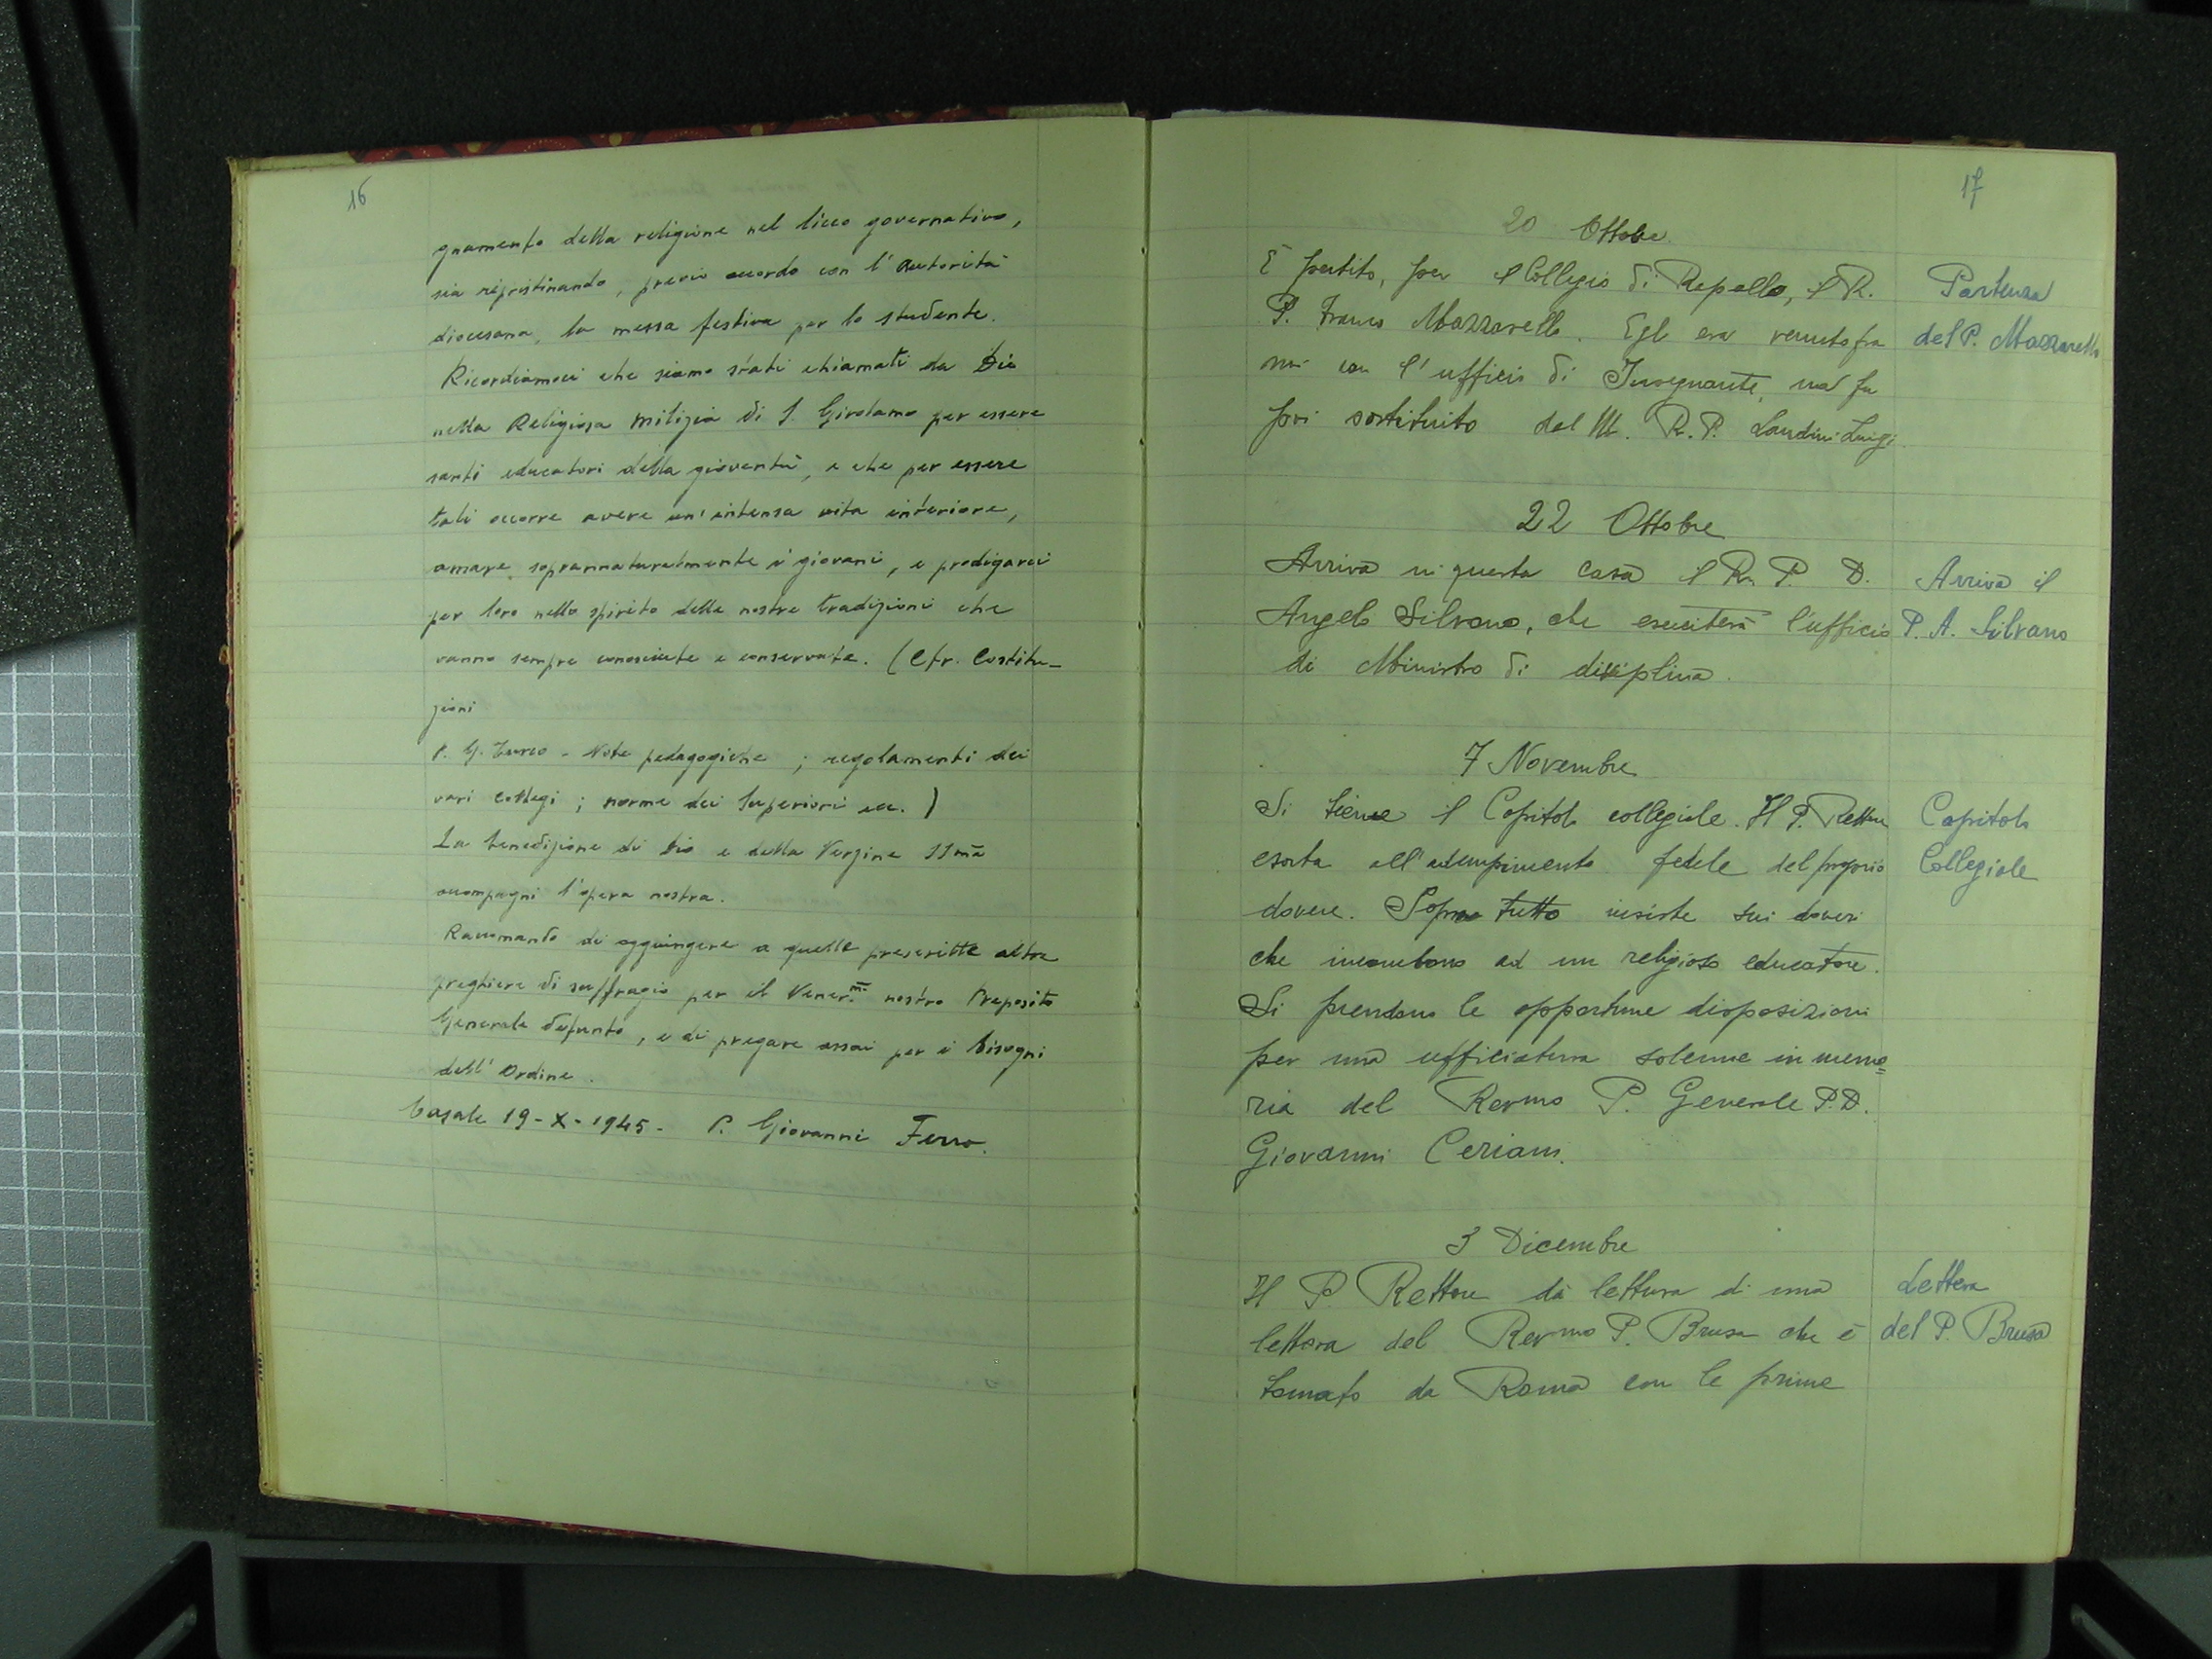 16
gnamento della religione nel liceo governativo,
sia ripristinando, previo accordo con l'autorità
diocesana, la messa festiva per lo studente.
Ricordiamoci che siamo stati chiamati da Dio
nella Religiosa milizia di S. Girolamo per essere
santi educatori della gioventù, e che per essere
tali occorre avere un'intensa vita interiore,
amare soprannaturalmente i giovani, e prodigarci
per loro nello spirito delle nostre tradizioni che
vanno sempre conosciute e conservate. (Cfr. Costitu-
zioni
P. G. Turco - Note pedagogiche ; regolamenti dei
vari collegi ; norme dei Superiori ecc. )
La benedizione di Dio e della Vergine SSma
accompagni l'opera nostra.
Raccomando di aggiungere a quelle prescritte altre
preghiere di suffragio per il Vener.mo nostro Preposito
Generale defunto, e di pregare assai per i bisogni
dell'Ordine.
Casale 19-X-1945- P. Giovanni Ferro.
17
20 Ottobre
È partito, per il Collegio di Rapallo, il R.
P. Franco Mazzarello. Egli era venuto fra
noi con l'ufficio di Insegnante, ma fu
poi sostituito dal M. R. P. Landini Luigi.
Partenza
del P. Mazzarello
22 Ottobre
Arriva in questa casa il R. P. D.
Angelo Silvano, che eserciterà l'ufficio
di Ministro di disciplina.
Arriva il
P. A. Silvano
7 Novembre
Si tiene il Capitolo collegiale. Il P. Rettore
esorta all'adempimento fedele del proprio
dovere. Sopra tutto insiste sui doveri
che incombono ad un religioso educatore.
Si prendono le opportune disposizioni
per una ufficiatura solenne in memo=
ria del Revmo P. Generale P. D.
Giovanni Ceriani.
Capitolo
Collegiale
3 Dicembre
Il P Rettore dà lettura di una
lettera del Revmo P. Brusa che è
tornato da Roma con le prime
Lettera
del P. Brusa